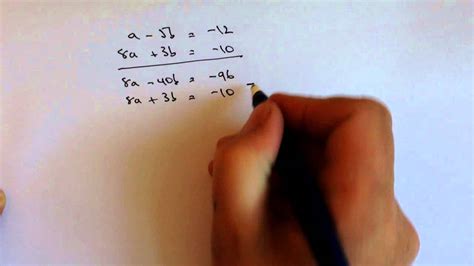 a - 5b = -12
8a + 3b = -10
8a - 40b = -96
8a + 3b = -10 -